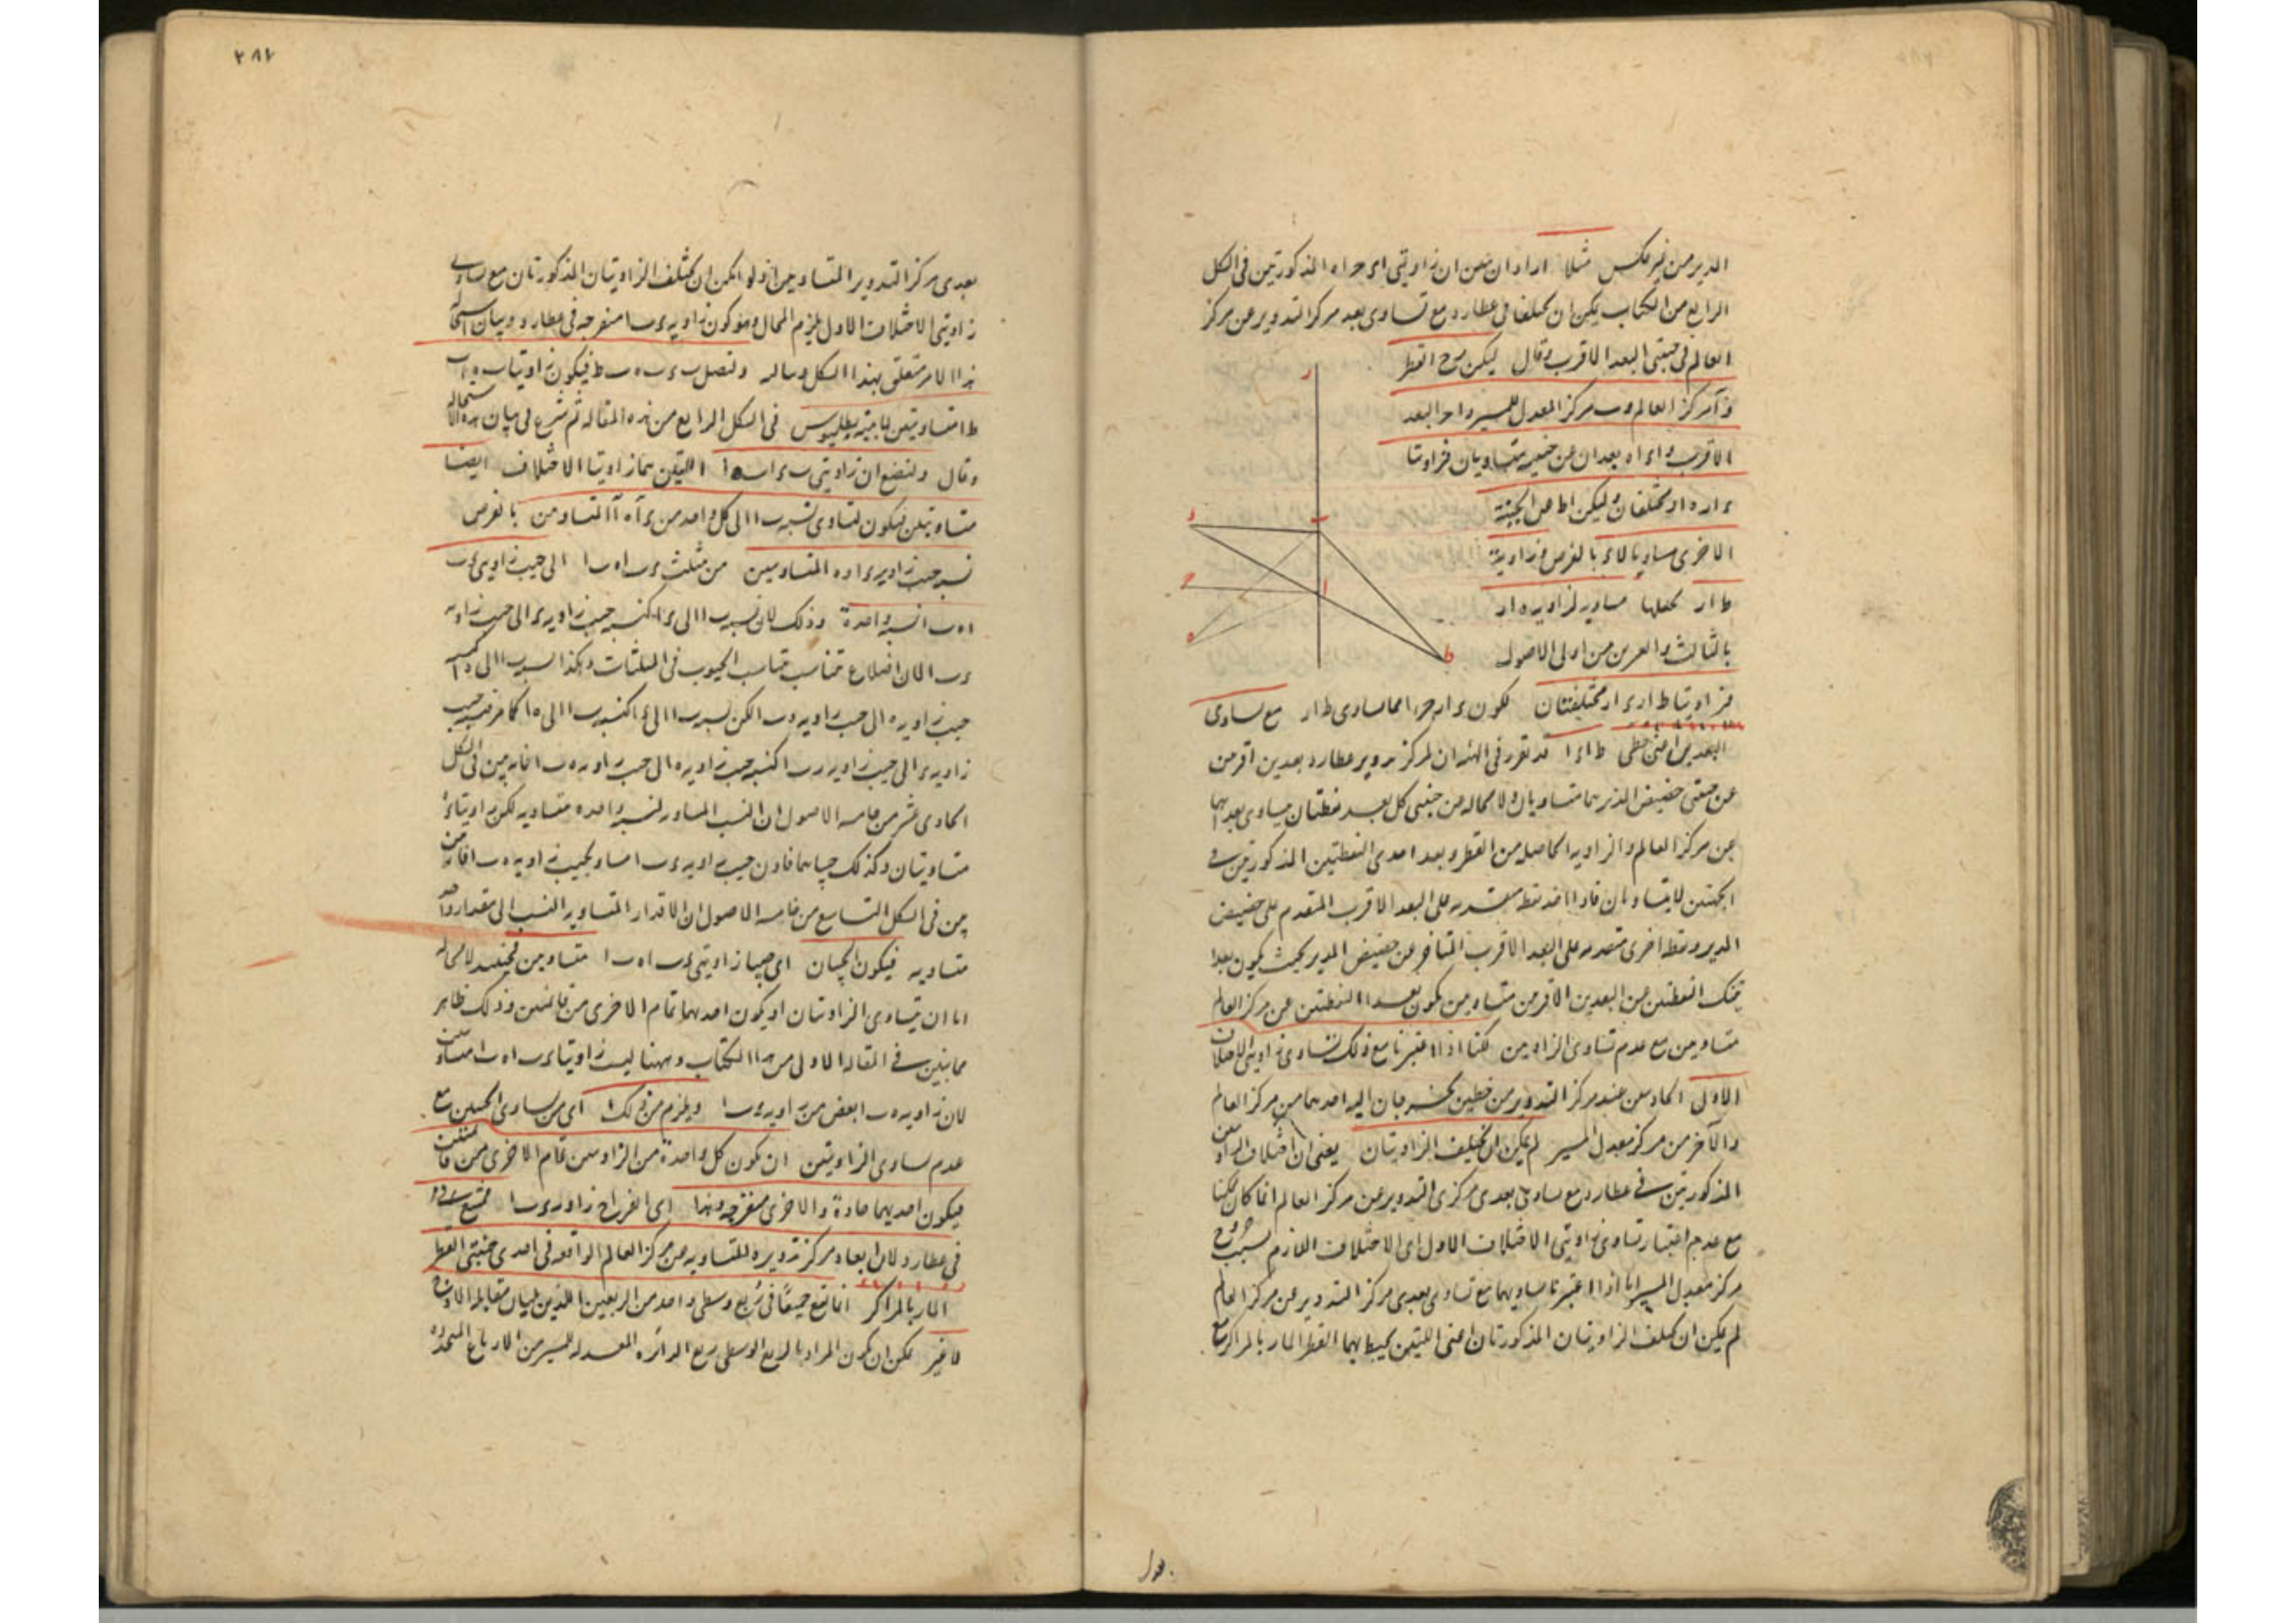 المدير من غير عكس مثلا اراد ان يبين ان زاويتى اى حر اه المذكورتين فى الشكل
الرابع من الكتاب يمكن ان يختلفا فى عطارد مع تساوى بعد مركز التدوير عن مركز
العالم فى جنبتى البعد الاقرب وقال ليكن رح القطر
و آ مركز العالم و ب مركز المعدل للمسير و ا ح البعد
الاقرب و اى اه بعدان عن جنبيه متساويان فزاويتا
ى ار ه ار مختلفتان وليكن اط من الجهة
الاخرى مساويا لاى بالفرض فزاوية
ط ار لجعلها مساوية لزاوية ه ار
بالثالث والعشرين من اولى الاصول
فزاويتا ط ار ى ار مختلفتان لكون ى ار مع تساوى
البعدين اعنى خطى ط ا ى ا قد تقرر فى الهيئة ان لمركز تدوير عطارد بعدين اقربين
عن جنبتى حضيض المدير هما متساويان ولا محالة من جنبى كل بعد نقطتان يساوى بعداهما
عن مركز العالم والزاوية الحاصلة من القطر وبعد احدى النقطتين المذكورتين فى
الجهتين لا يتساويان فاذا اخذ نقطة متقدمة على البعد الاقرب المتقدم على حضيض
المدير ونقطة اخرى متقدمة على البعد الاقرب المتأخر عن حضيض المدير بحيث يكون بعدا
تينك النقطتين عن البعدين الاقربين متساويين يكون بعدا النقطتين عن مركز العالم
متساويين مع عدم تساوى الزاويتين لكنا اذا اعتبرنا مع ذلك تساوى زاويتى الاختلاف
الاول الحادثتين عند مركز التدوير من خطين يخرجان اليه احدهما من مركز العالم
والآخر من مركز معدل المسير لم يمكن ان يختلف الزاويتان يعنى ان اختلاف الزاويتين
المذكورتين فى عطارد مع تساوى بعدى مركزى التدوير عن مركز العالم انما كان ممكنا
مع عدم اعتبار تساوى زاويتى الاختلاف الاول اى الاختلاف اللازم بسبب خروج
مركز معدل المسير اما اذا اعتبرنا تساويهما مع تساوى بعدى مركز التدوير عن مركز العالم
لم يمكن ان يختلف الزاويتان المذكورتان اعنى اللتين يحيط بهما القطر المار بالمراكز مع
ر
ى
ب
ح
ا
ه
ط
٢٨٢
بعدى مركز التدوير المتساويين اذ لو امكن ان يختلف الزاويتان المذكورتان مع تساوى
زاويتى الاختلاف الاول يلزم المحال وهو كون زاوية ى ب ا منفرجة فى عطارد وبيان استحالة
هذا الامر متعلق بهذا الشكل ونصل ب ى ب ه ب ط فيكون زاويتا ب ه ا ب
ط ا متساويتين لما بينه بطلميوس فى الشكل الرابع من هذه المقالة ثم شرع فى بيان هذه الاستحالة
وقال ولنضع ان زاويتى ب ى ا ب ه ا اللتين هما زاويتا الاختلاف ايضا
متساويتين فيكون لتساوى نسبة ب ا الى كل واحد من ى آ ه آ المتساويين بالفرض
نسبة جيب زاوية ى او ه المتساويين من مثلث ى ب ا ه ب ا الى جيب زاويتى ى ب
ا ه ب ا نسبة واحدة وذلك لان نسبة ب ا الى ى ا كنسبة جيب زاوية ى الى جيب زاوية
ى ب ا لان اضلاع تتناسب تناسب الجيوب فى المثلثات وهكذا نسبة ب ا الى ه ا كنسبة
جيب زاوية ه الى جيب زاوية ه ب ا لكن نسبة ب ا الى ى ا كنسبة ب ا الى ه ا كما مر فنسبة جيب
زاوية ى الى جيب زاوية ى ب ا كنسبة جيب زاوية ه الى جيب زاوية ه ب ا لما تبين فى الشكل
الحادى عشر من خامسة الاصول ان النسب المساوية لنسبة واحدة متساوية لكن زاويتا ى ه
متساويتان وكذلك جيباهما فاذن جيب زاوية ى ب ا مساو لجيب زاوية ه ب ا لما تبين
من فى الشكل التاسع من خامسة الاصول ان الاقدار المتساوية النسب الى مقدار واحد
متساوية فيكون الجيبان اى جيبا زاويتى ى ب ا ه ب ا متساويين فحينئذ لا محالة
اما ان يتساوى الزاويتان او يكون احدهما تمام الاخرى من قائمتين وذلك ظاهر
مما بين فى المقالة الاولى من هذا الكتاب وههنا ليست زاويتا ى ب ا ه ب ا متساويتين
لان زاوية ه ب ا بعض من زاوية ى ب ا ويلزم من ذلك اى من تساوى الجيبين مع
عدم تساوى الزاويتين ان يكون كل واحدة من الزاويتين تمام الاخرى من قائمتين
فيكون احديهما حادة والاخرى منفرجة وهذا اى انفراج زاوية ى ب ا ممتنع
فى عطارد لان ابعاد مركز تدويره المتساوية عن مركز العالم الواقعة فى احدى جنبتى القطر
المار بالمراكز انما تقع جميعا فى ربع وسطى واحد من الربعين اللذين يليان مقابلة الاوج
لا غير يمكن ان يكون المراد بالربع الوسطى ربع الدائرة المعدلة للمسير من الارباع المتحددة